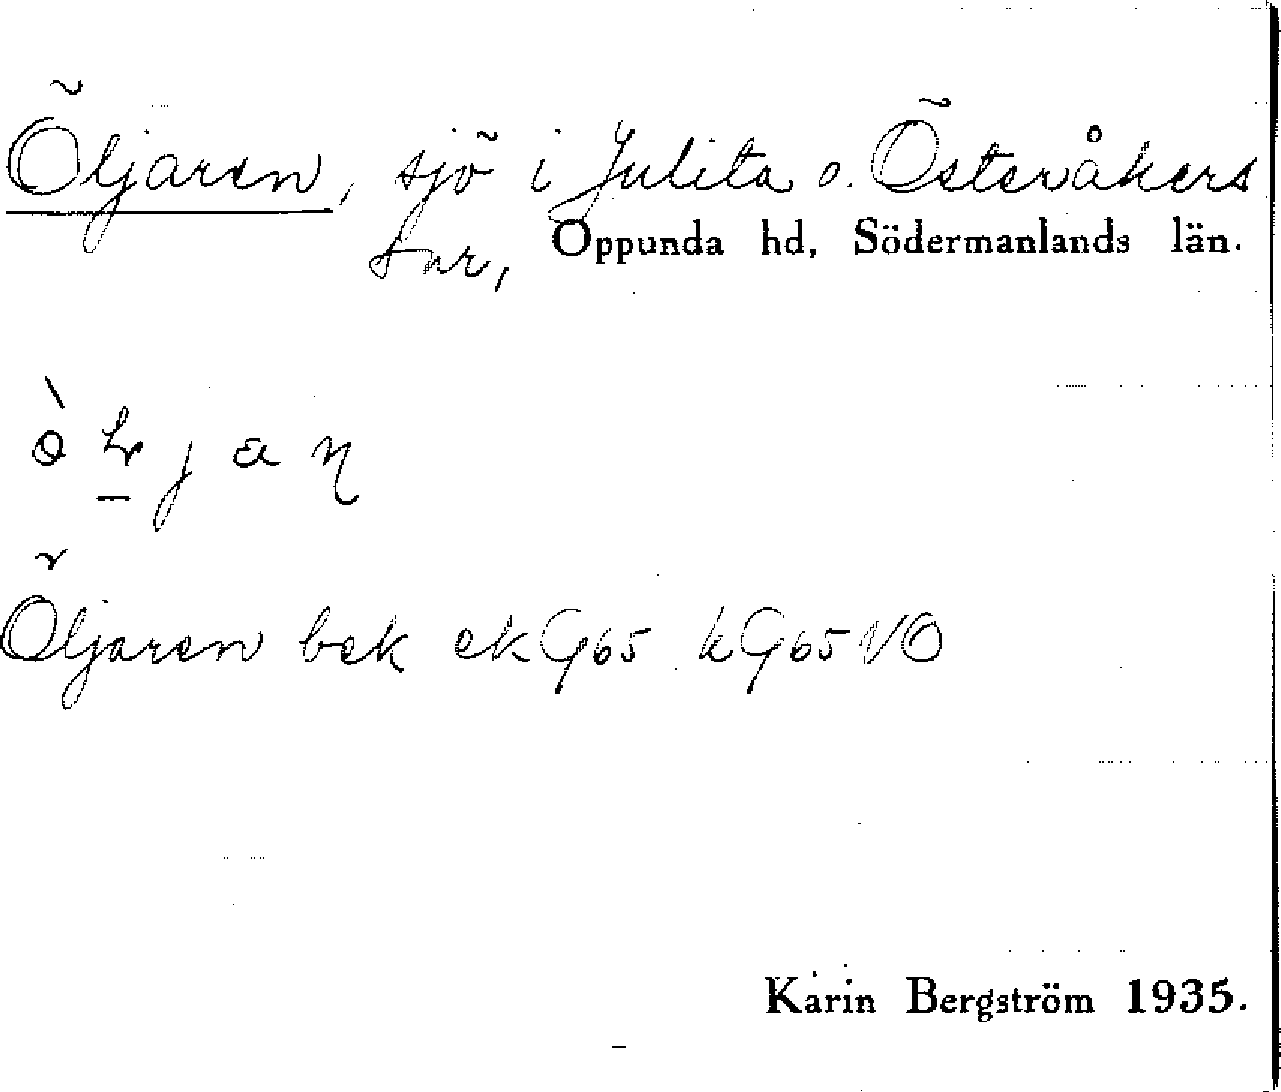 Öljaren, sjö i Julita o. Österåkers
snr, Oppunda hd, Södermanlands län.
Öljaren bek ek G65 k G65 VO
Karin Bergström 1935.